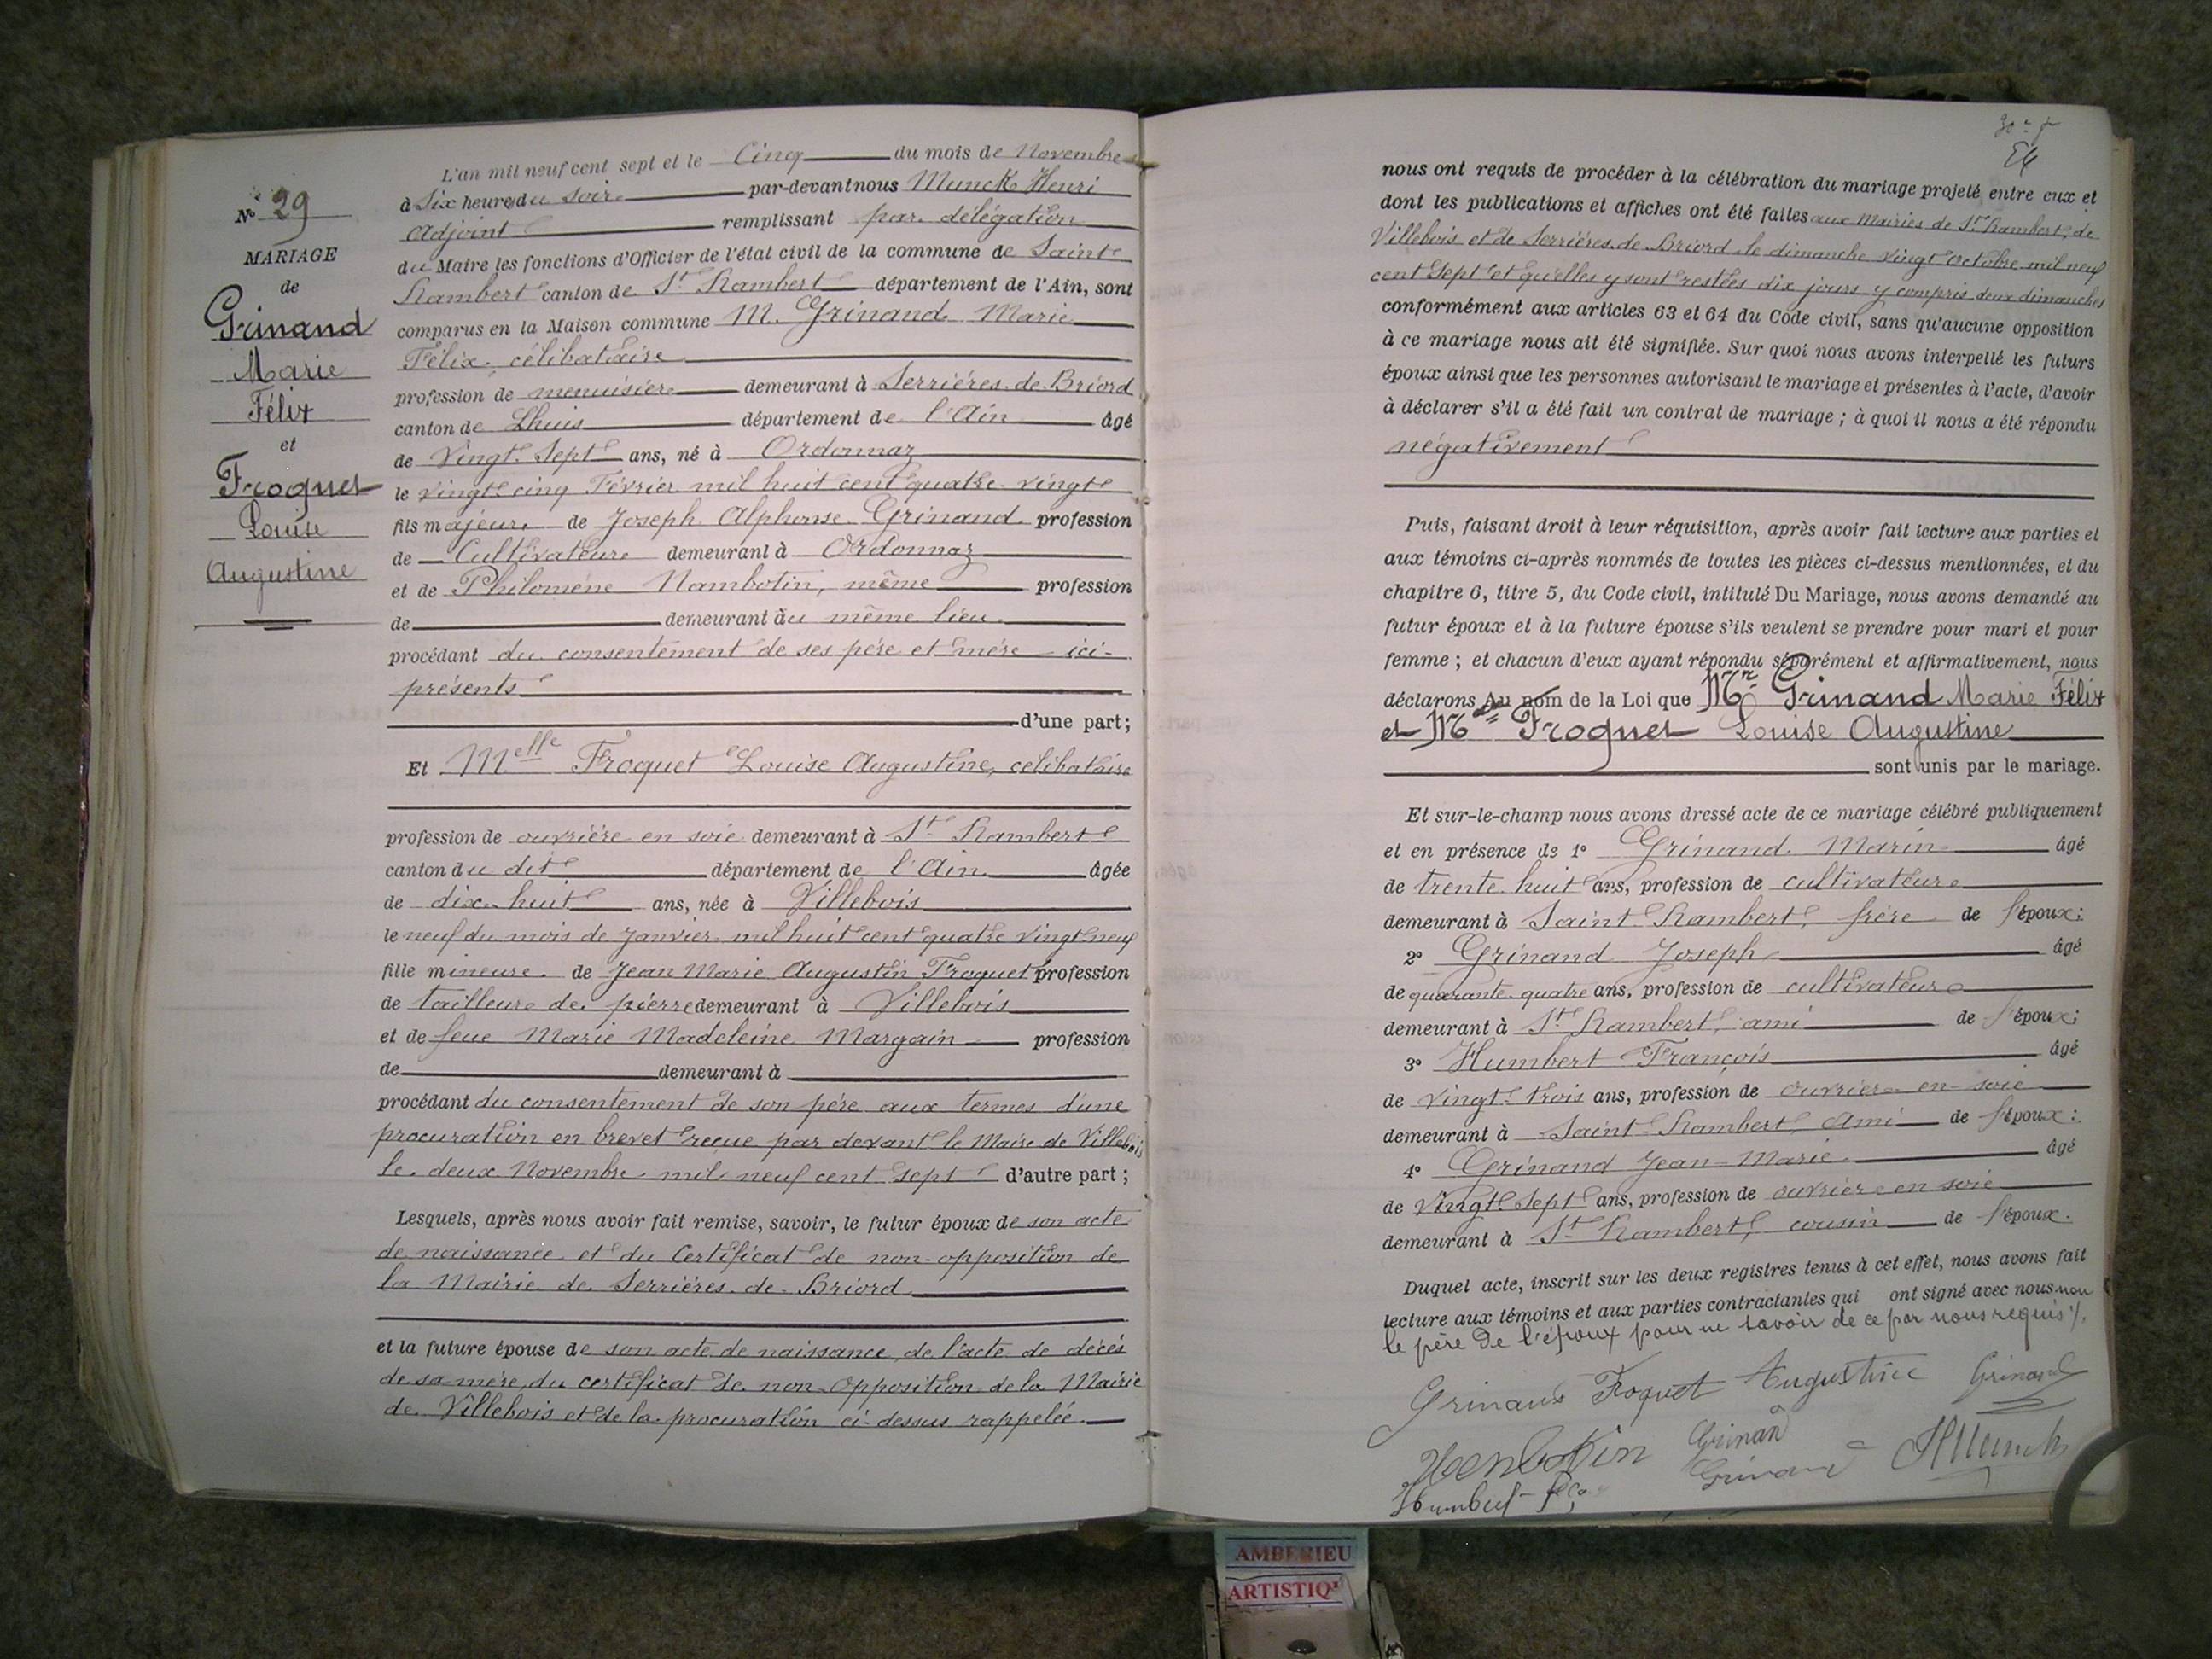 N° 29
MARIAGE
de
Grinand
Marie
Félix
et
Froquet
Louise
Augustine
L'an mil neuf cent sept et le Cinq du mois de Novembre
à Six heures du soir par-devant nous Munck Henri
Adjoint remplissant par délégation
du Maire les fonctions d'Officier de l'état civil de la commune de Saint
Rambert canton de St Rambert département de l'Ain, sont
comparus en la Maison commune M. Grinand Marie
Félix célibataire
profession de menuisier demeurant à Serrières de Briord
canton de Lhuis département de l'Ain âgé
de Vingt Sept ans, né à Ordonnaz
le vingt cinq Février mil huit cent quatre vingt
fils majeur de Joseph Alphonse Grinand profession
de Cultivateur demeurant à Ordonnaz
et de Philomène Nambotin, même profession
de demeurant au même lieu
procédant du consentement de ses père et mère ici-
présents
d'une part;
Et Melle Froquet Louise Augustine, célibataire
profession de ouvrière en soie demeurant à St Rambert
canton du dit département de l'Ain âgée
de dix-huit ans, née à Villebois
le neuf du mois de Janvier mil huit cent quatre vingt neuf
fille mineure de Jean Marie Augustin Froquet profession
de tailleur de pierre demeurant à Villebois
et de feue Marie Madeleine Margain profession
de demeurant à
procédant du consentement de son père aux termes d'une
procuration en brevet reçue par devant le Maire de Villebois
le deux Novembre mil neuf cent sept d'autre part;
Lesquels, après nous avoir fait remise, savoir, le futur époux de son acte
de naissance et du Certificat de non-opposition de
la Mairie de Serrières de Briord
et la future épouse de son acte de naissance, de l'acte de décès
de sa mère, du certificat de non-opposition de la Mairie
de Villebois et de la procuration ci-dessus rappelée
54
nous ont requis de procéder à la célébration du mariage projeté entre eux et
dont les publications et affiches ont été faites aux Mairies de St Rambert, de
Villebois et de Serrières de Briord le dimanche vingt Octobre mil neuf
cent sept et qu'elles y sont restées dix jours y compris deux dimanches
conformément aux articles 63 et 64 du Code civil, sans qu'aucune opposition
à ce mariage nous ait été signifiée. Sur quoi nous avons interpellé les futurs
époux ainsi que les personnes autorisant le mariage et présentes à l'acte, d'avoir
à déclarer s'il a été fait un contrat de mariage; à quoi il nous a été répondu
négativement
Puis, faisant droit à leur réquisition, après avoir fait lecture aux parties et
aux témoins ci-après nommés de toutes les pièces ci-dessus mentionnées, et du
chapitre 6, titre 5, du Code civil, intitulé Du Mariage, nous avons demandé au
futur époux et à la future épouse s'ils veulent se prendre pour mari et pour
femme; et chacun d'eux ayant répondu séparément et affirmativement, nous
déclarons Au nom de la Loi que Mr Grinand Marie Félix
et Melle Froquet Louise Augustine
sont unis par le mariage.
Et sur-le-champ nous avons dressé acte de ce mariage célébré publiquement
et en présence de 1° Grinand Marin âgé
de trente huit ans, profession de cultivateur
demeurant à Saint Rambert, frère de l'époux;
2° Grinand Joseph âgé
de quarante quatre ans, profession de cultivateur
demeurant à St Rambert, ami de l'époux;
3° Humbert François âgé
de Vingt trois ans, profession de ouvrier en soie
demeurant à Saint Rambert, ami de l'époux;
4° Grinand Jean-Marie âgé
de Vingt Sept ans, profession de ouvrier en soie
demeurant à St Rambert, cousin de l'époux.
Duquel acte, inscrit sur les deux registres tenus à cet effet, nous avons fait
lecture aux témoins et aux parties contractantes qui ont signé avec nous non
le père de l'époux pour ne savoir de ce par nous requis ./.
Grinand Froquet Augustine Grinand
Nenbotin Grinan HMunck
Humbert Fçs Grinand
AMBERIEU
ARTISTIQ'